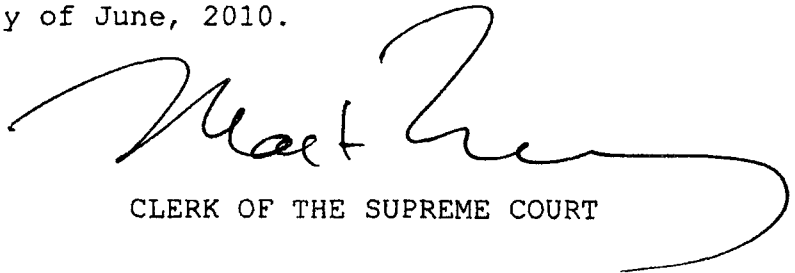 y of June, 2010.
CLERK OF THE SUPREME COURT